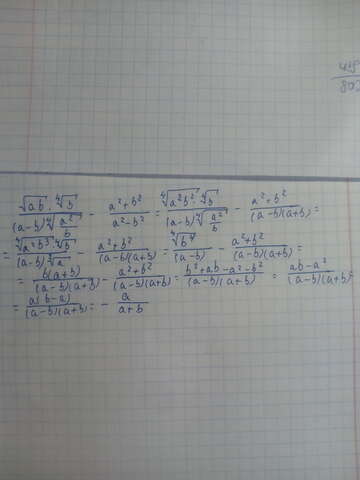 √ab · ∜b / (a-b)∜(a²/b) - a²+b² / a²-b² = ∜a²b² · ∜b / (a-b)∜(a²/b) - a²+b² / (a-b)(a+b) =
= ∜a²b³ · ∜b / (a-b)∜a - a²+b² / (a-b)(a+b) = ∜b⁴ / (a-b) - a²+b² / (a-b)(a+b) =
= b(a+b) / (a-b)(a+b) - a²+b² / (a-b)(a+b) = b²+ab-a²-b² / (a-b)(a+b) = ab-a² / (a-b)(a+b) =
= a(b-a) / (a-b)(a+b) = - a / a+b